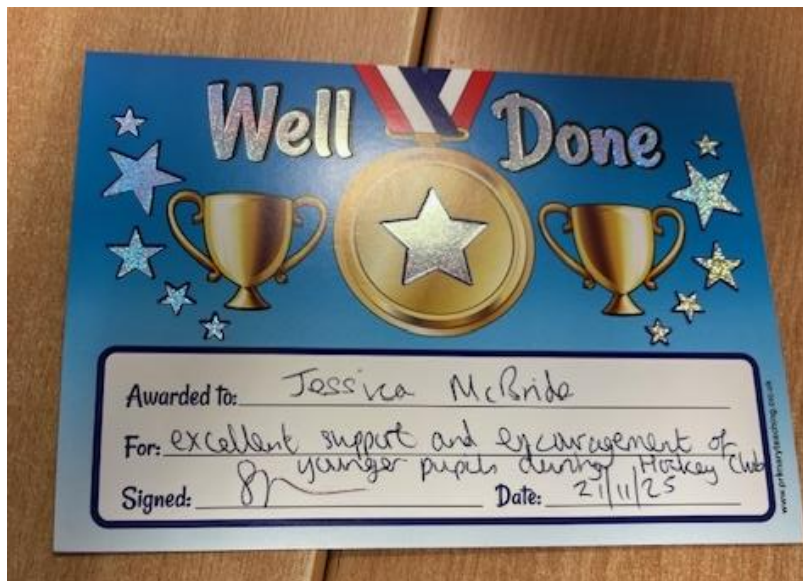 Well Done
Awarded to: Jessica McBride
For: excellent support and encouragement of
younger pupils during Hockey Club
Signed:
Date: 21/11/25
www.primaryteaching.co.uk